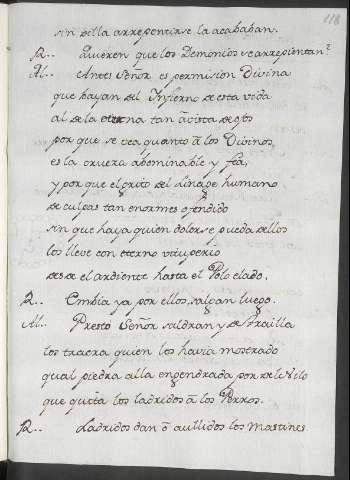 118
sin della arrepentirse la acababan.
R.. Quieren que los Demonios se arrepientan?
Al.. Antes Señor es permision Divina
que bayan del Infierno de esta vida
al de la eterna tan avista de
por que se vea quanto â los Divinos,
es la crueza abominable y fêa,
y por que el grito del Linage humano
de culpas tan enormes ofendido
sin que haya quien dolerse pueda dellos
los lleve con eterno vituperio
desde el ardiente hasta el Polo elado.
R.. Embia ya por ellos, salgan luego.
Al.. Presto Señor saldran, y de Trailla
los traera quien los havia mostrado
qual piedra alla engendrada por
que quita los ladridos â los Perros.
R.. Ladridos dan ô aullidos los Mastines